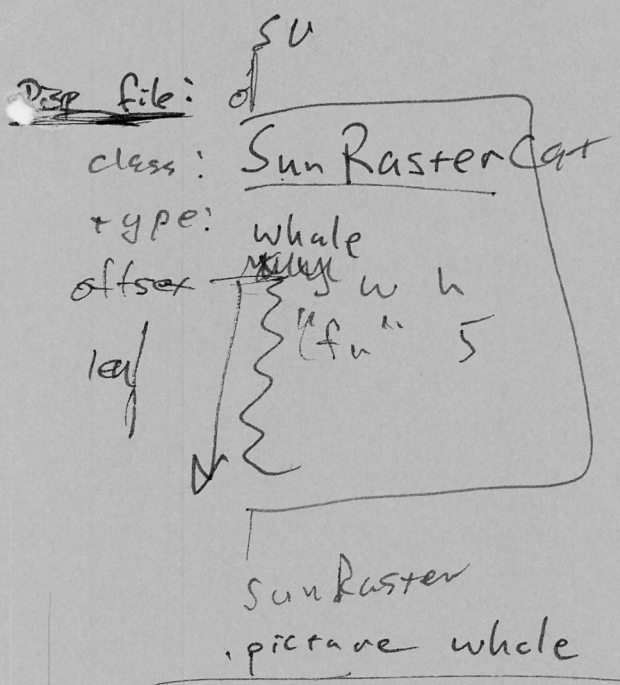 SU
Disp file:
class: SunRasterCat
type: whale
offset w h
len "fn" 5
SunRaster
.picture whale